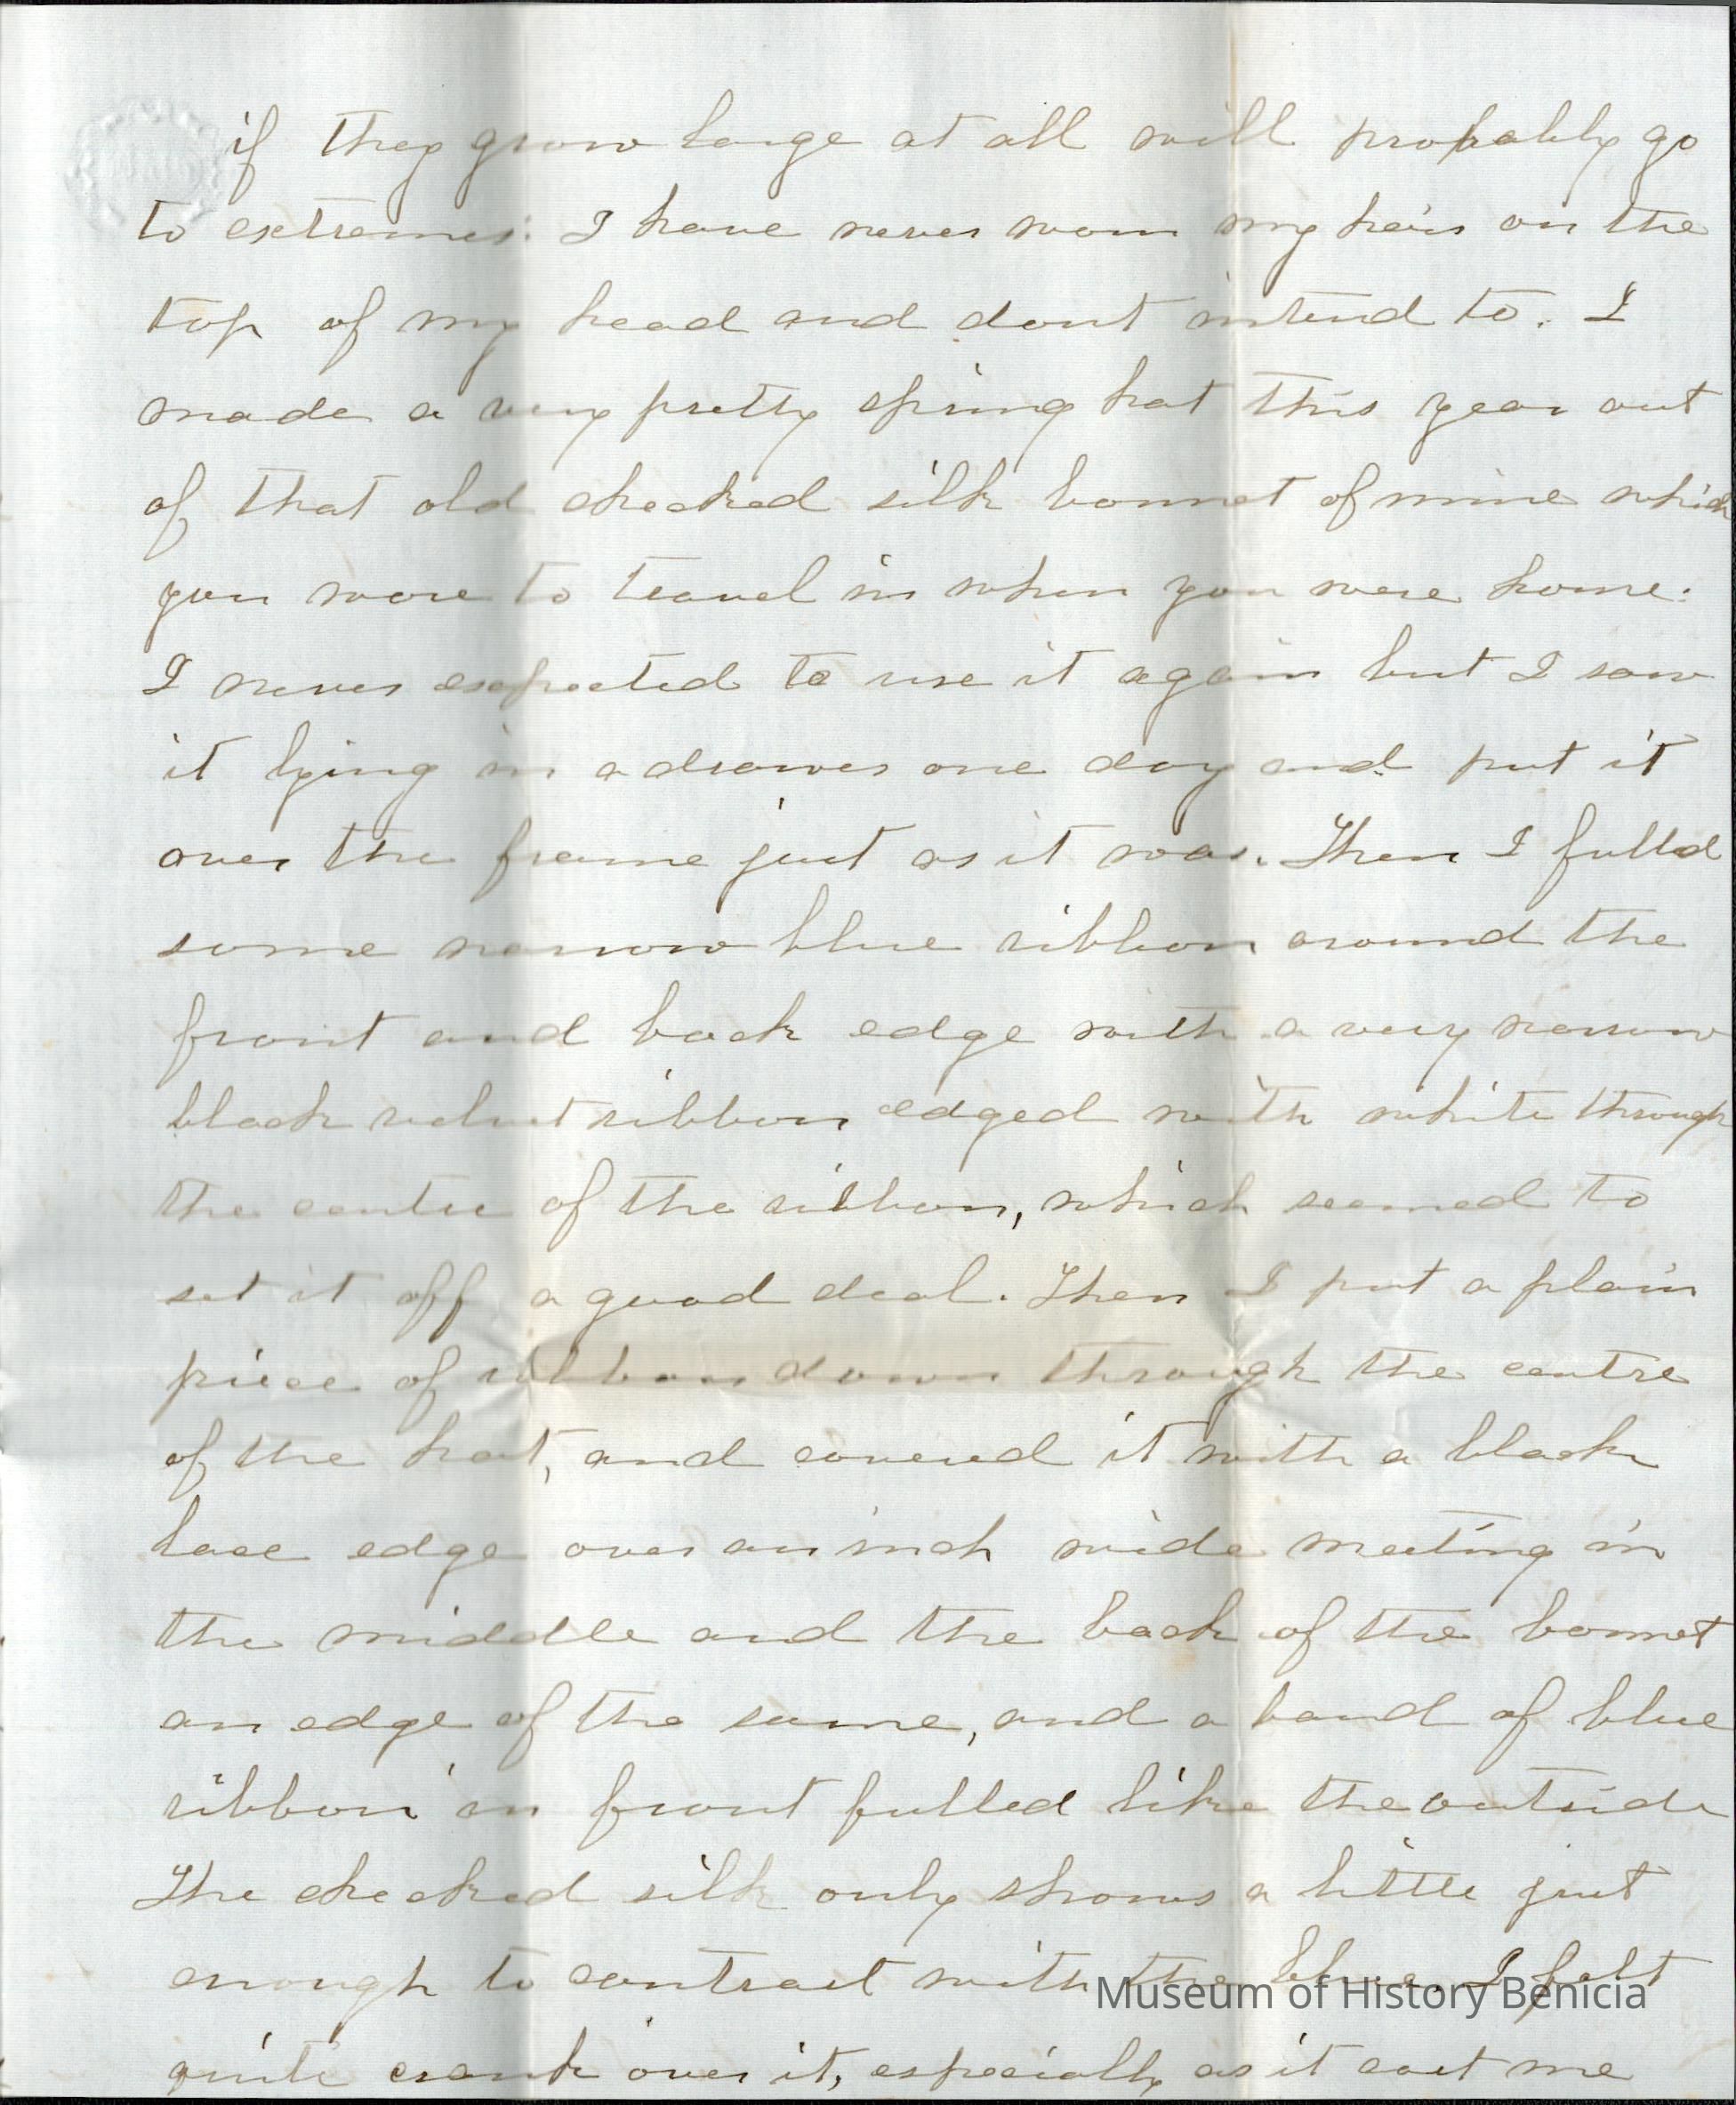 if they grow large at all will probably go
to extremes. I have never worn my hair on the
top of my head and dont intend to. I
made a very pretty spring hat this year out
of that old checked silk bonnet of mine which
you wore to travel in when you were home.
I never expected to use it again but I saw
it lying in a drawer one day and put it
over the frame just as it was. Then I fulled
some narrow blue ribbon around the
front and back edge with a very narrow
black velvet ribbon edged with white through
the centre of the ribbon, which seemed to
set it off a good deal. Then I put a plain
piece of ribbon down through the centre
of the hat, and covered it with a black
lace edge over an inch wide meeting in
the middle and the back of the bonnet
an edge of the same, and a band of blue
ribbon in front fulled like the outside
The checked silk only shows a little just
enough to contrast with the blue. I felt
Museum of History Benicia
quite crank over it, especially as it cost me